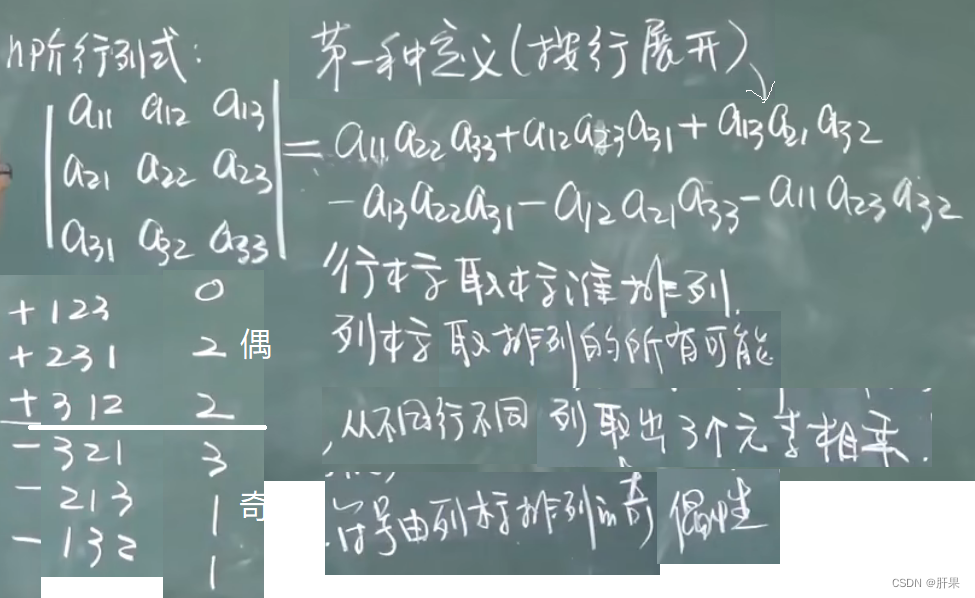 n阶行列式:
第一种定义(按行展开)
a11 a12 a13
a21 a22 a23
a31 a32 a33
= a11 a22 a33 + a12 a23 a31 + a13 a21 a32
- a13 a22 a31 - a12 a21 a33 - a11 a23 a32
行标取标准排列.
列标取排列的所有可能
,从不同行不同列取出3个元素相乘.
.符号由列标排列的奇偶性
+ 123 0
+ 231 2 偶
+ 312 2
- 321 3
- 213 1 奇
- 132 1
CSDN @肝果